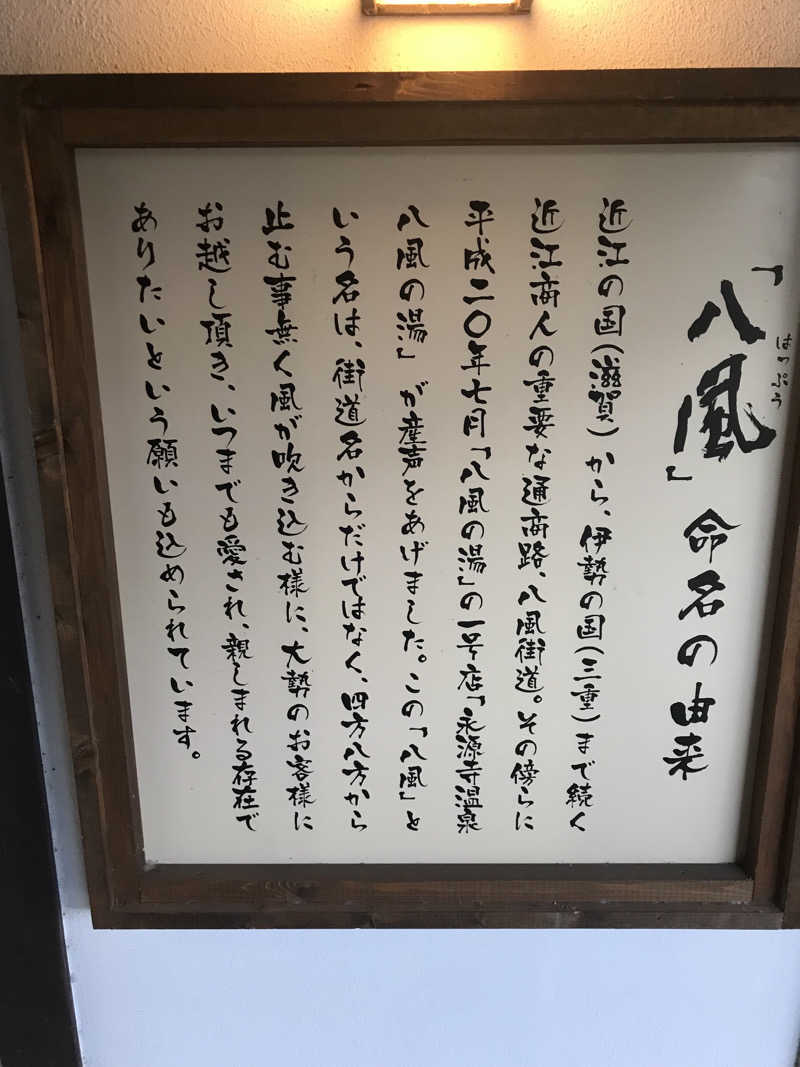 「八風」命名の由来
はっぷう
近江の国(滋賀)から、伊勢の国(三重)まで続く
近江商人の重要な通商路、八風街道。その傍らに
平成二〇年七月「八風の湯」の一号店「永源寺温泉
八風の湯」が産声をあげました。この「八風」と
いう名は、街道名からだけではなく、四方八方から
止む事無く風が吹き込む様に、大勢のお客様に
お越し頂き、いつまでも愛され、親しまれる存在で
ありたいという願いも込められています。